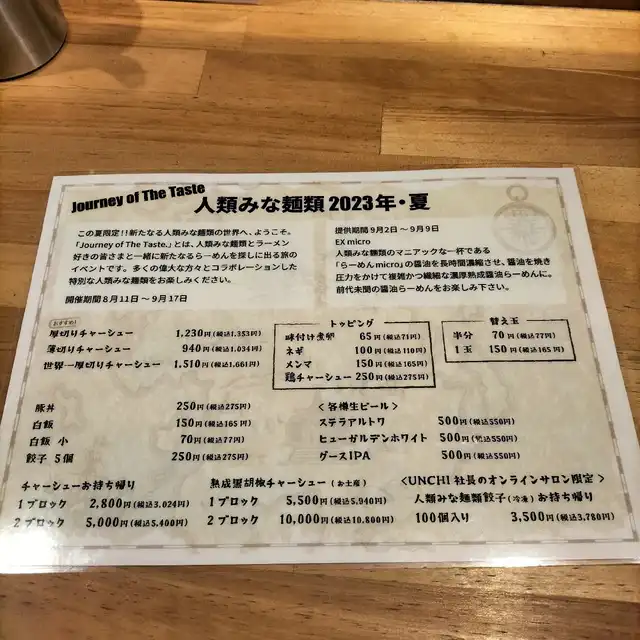 Journey of The Taste
人類みな麺類 2023年・夏
この夏限定!!新たなる人類みな麺類の世界へ、ようこそ。
「Journey of The Taste.」とは、人類みな麺類とラーメン
好きの皆さまと一緒に新たなるらーめんを探しに出る旅の
イベントです。多くの偉大な方々とコラボレーションした
特別な人類みな麺類をお楽しみください。
開催期間 8月11日 〜 9月17日
提供期間 9月2日 〜 9月9日
EX micro
人類みな麺類のマニアックな一杯である
「らーめん micro」の醤油を長時間濃縮させ、醤油を焼き
圧力をかけて複雑かつ繊細な濃厚熟成醤油らーめんに。
前代未聞の醤油らーめんをお楽しみ下さい。
おすすめ
厚切りチャーシュー 1,230円(税込1,353円)
薄切りチャーシュー 940円(税込1,034円)
世界一厚切りチャーシュー 1,510円(税込1,661円)
トッピング
味付け煮卵 65円(税込71円)
ネギ 100円(税込110円)
メンマ 150円(税込165円)
鶏チャーシュー 250円(税込275円)
替え玉
半分 70円(税込77円)
1玉 150円(税込165円)
豚丼 250円(税込275円)
白飯 150円(税込165円)
白飯 小 70円(税込77円)
餃子 5個 250円(税込275円)
<各樽生ビール>
ステラアルトワ 500円(税込550円)
ヒューガルデンホワイト 500円(税込550円)
グースIPA 500円(税込550円)
チャーシューお持ち帰り
1ブロック 2,800円(税込3,024円)
2ブロック 5,000円(税込5,400円)
熟成黒胡椒チャーシュー(お土産)
1ブロック 5,500円(税込5,940円)
2ブロック 10,000円(税込10,800円)
<UNCHI社長のオンラインサロン限定>
人類みな麺類餃子(冷凍)お持ち帰り
100個入り 3,500円(税込3,780円)